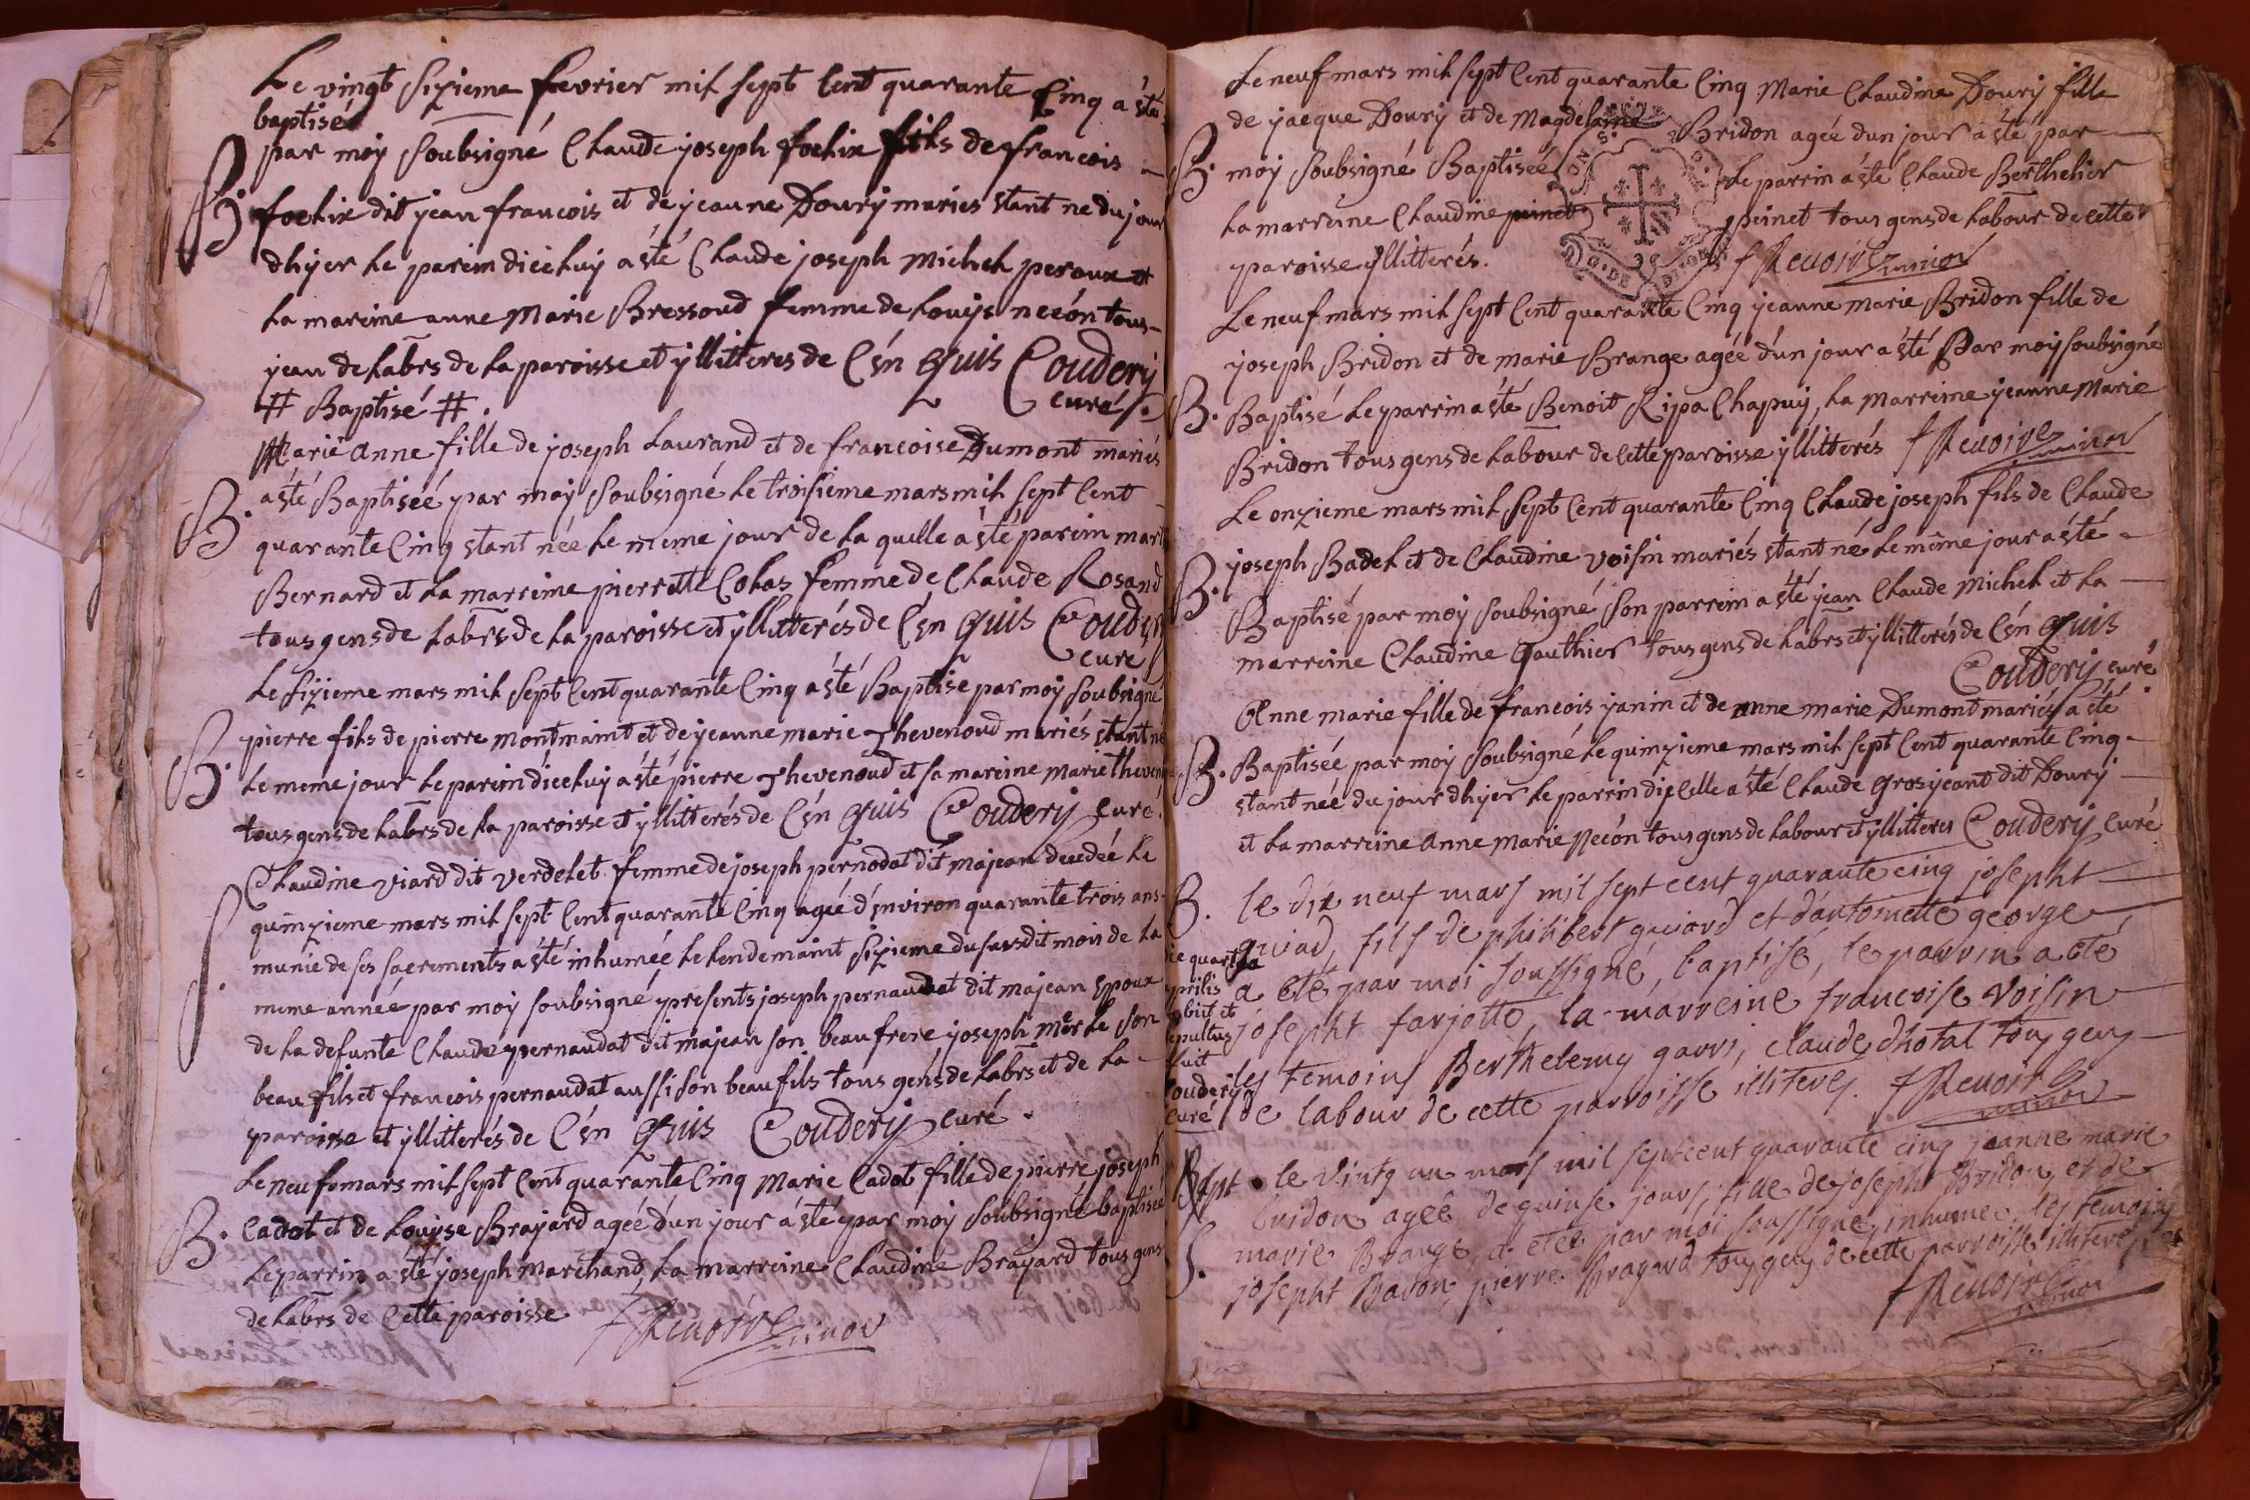 Le vingt sixieme fevrier mil sept Cent quarante Cinq a été
baptisé
par moy soubsigné Claude joseph foelix fils de francois
B. foelix dit jean francois et de jeanne Doury mariés étant né du jour
dhyer le parein dicéluy a été Claude joseph Michel peroux et
la mareine anne Marie Bressoud femme de Louys necón tous
gens de labrs de la paroisse et yllitterés de Cén quis Coudery
# Baptisé #. curé.
Marie Anne fille de joseph Laurand et de francoise Dumont mariés
B. a été Baptiseé par moy soubsigné le troisieme mars mil sept Cent
quarante Cinq étant née le meme jour de la quelle a été parein
Bernard et la marreine pierrette Colas femme de Claude Rosand
tous gens de labrs de la paroisse et yllitterés de Cén quis Coudery
curé
Le sixieme mars mil sept Cent quarante Cinq a été Baptisé par moy soubsigné
B. pierre fils de pierre montmaint et de jeanne marie Thevenoud mariés étant né
le meme jour le parein dicéluy a été pierre Thevenoud et sa mareine marie
tous gens de labrs de la paroisse et yllitterés de Cén quis Coudery Curé.
Claudine Viard dit Verdelet femme de joseph pernodat dit majean decedée le
S. quinzieme mars mil sept Cent quarante Cinq ageé d'environ quarante trois ans
munie de ses sacrements a été inhumée le lendemaint sizieme du susdit mois de la
meme année par moy soubsigné presents joseph pernaudat dit majean époux
de la defunte Claude pernaudat dit majean son beau frere joseph son
beau fils et francois pernaudat aussi son beau fils tous gens de labrs et de la
paroisse et yllitterés de Cén quis Coudery curé.
Le neuf mars mil sept Cent quarante Cinq Marie Cadot fille de pierre joseph
B. Cadot et de Louyse Brayard agée d'un jour a été par moy soubsigné baptisée
Le parrin a été joseph Marchand, la marreine Claudine Brayard tous gens
de labrs de Cette paroisse f Revoire minor
Le neuf mars mil sept Cent quarante Cinq Marie Claudine Doury fille
de jacque Doury et de Magdelaine Bridon agée dun jour a été par
B. moy soubsigné Baptiseé Le parrin a été Claude Berthelier
la marreine Claudine peinet tous gens de labour de cette
paroisse yllitterés. f Revoire minor
Le neuf mars mil sept Cent quarante Cinq jeanne marie Bridon fille de
joseph Bridon et de marie Brange agée d'un jour a été Par moy soubsigné
B. Baptisé Le parrin a été Benoit Ripa Chapuy, la Marreine jeanne Marie
Bridon tous gens de labour de Cette paroisse yllitterés f Revoire minor
Le onzieme mars mil sept Cent quarante Cinq Claude joseph fils de Claude
B. joseph Badel et de Claudine Voisin mariés étant né le même jour a été
Baptisé par moy soubsigné son parrein a été jean Claude Michel et la
marreine Claudine Gauthier tous gens de labrs et yllitterés de Cén quis
Coudery curé.
Anne marie fille de francois janin et de anne marie Dumont mariés a été
B. Baptisée par moy soubsigné le quinzieme mars mil sept Cent quarante Cinq
étant née du jour dhyer le parrin dicelle a été Claude grosjeant dit Doury
et la marreine Anne Marie Necón tous gens de labour et yllitteres Coudery Curé
B. le dix neuf mars mil sept cent quarante cinq josepht
guiad, fils de philibert guiard et dantoinette george
a eté par moi soussigné, baptisé, le parrin a eté
josepht farjotte, la marreine francoise Voisin
les temoins Berthelemy garri, claude dhotal tous gens
de labour de cette parroisse illiteres. f Revoire minor
die quarta
aprilis
obiit et
sepultus
fuit
Coudery
curé
le vintg un mars mil sept cent quarante cinq jeanne marie
bridon ageé de quinse jours, fille de joseph Bridon, et de
marie Brange, a eteé par moi soussigné, inhumeé les temoins
S. josepht Badon, pierre Brayard tous gens de cette parroisse illiteres
f Revoire minor